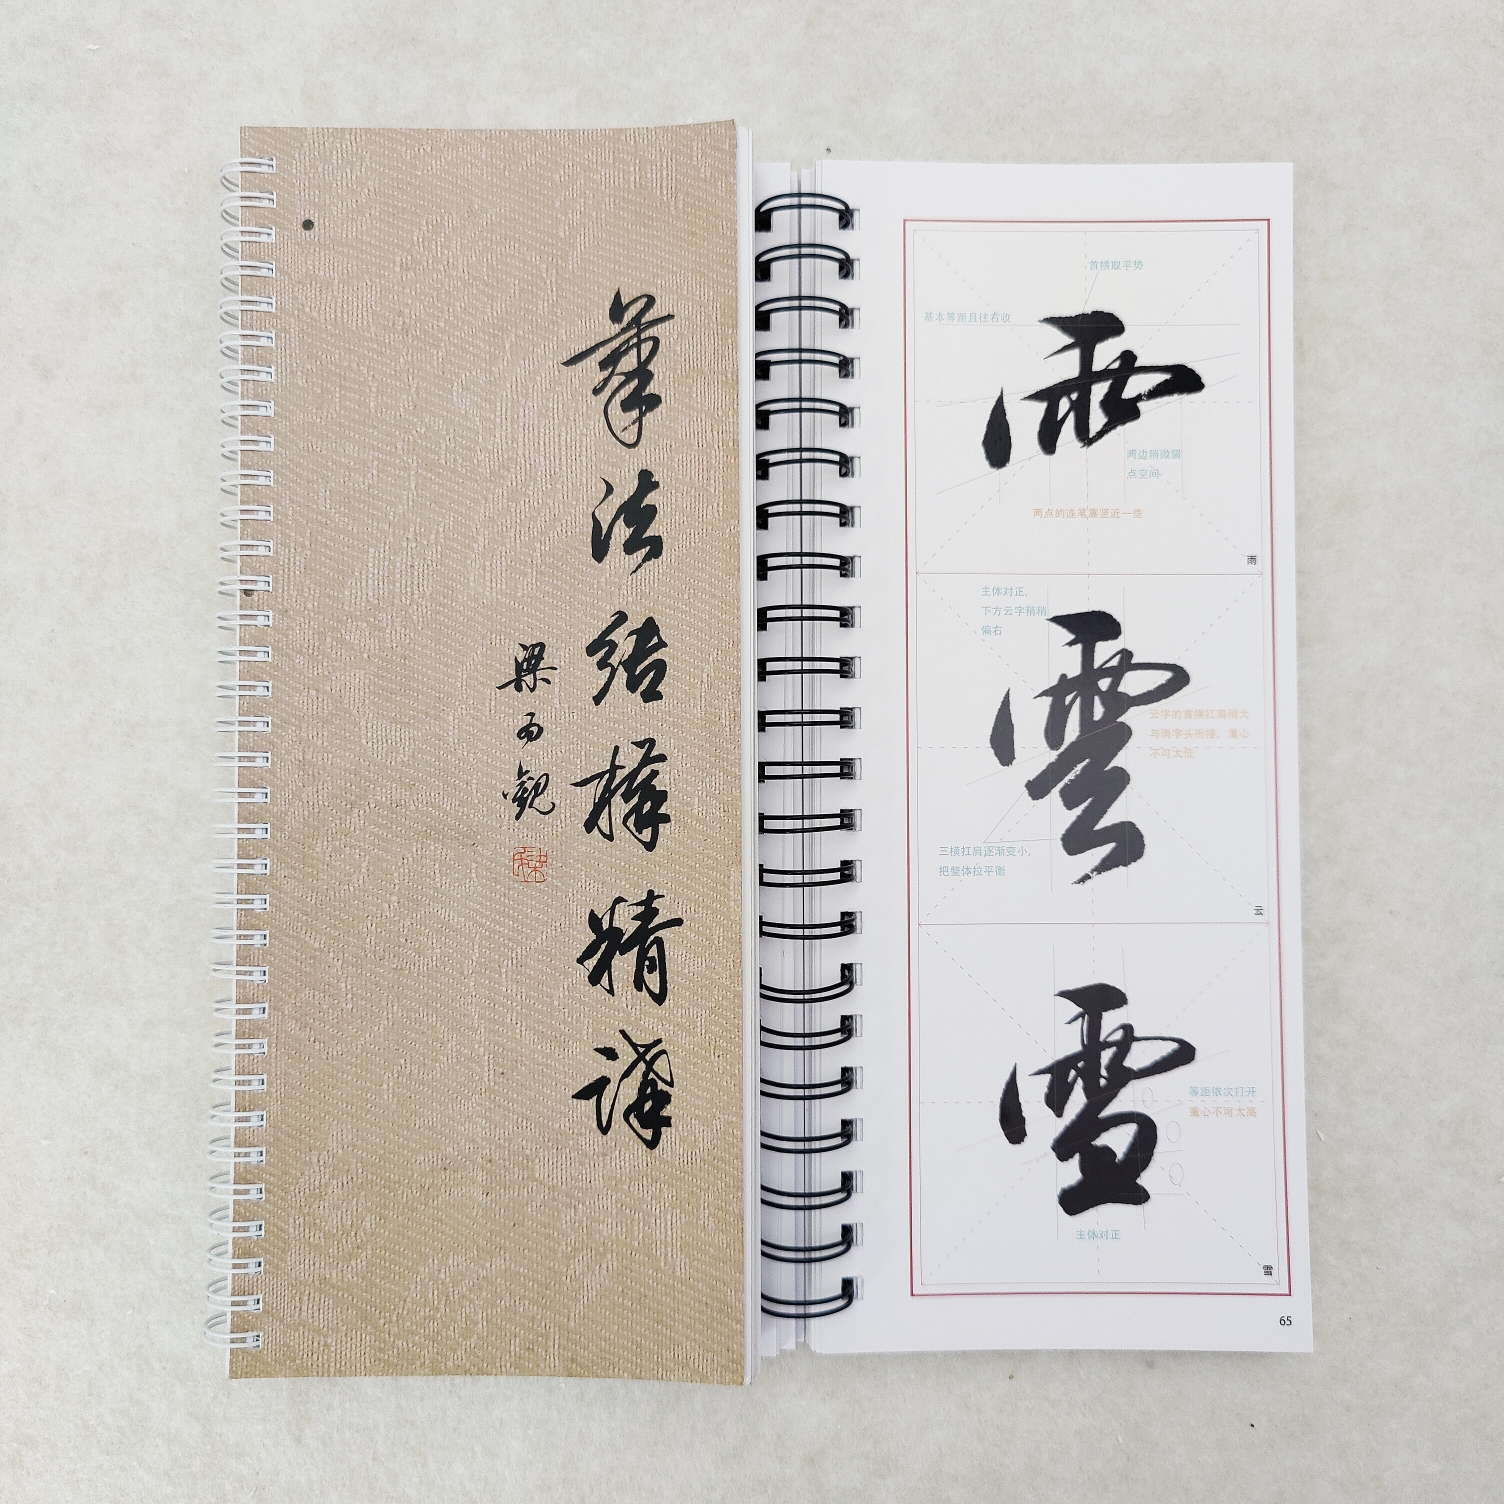 筆法結構精講
梁又觀
首横取平势
基本等距且往右收
雨
两边稍微留
点空间
两点的连笔靠竖近一些
雨
主体对正，
下方云字稍稍
偏右
雲
云字的首横扛肩稍大
与雨字头衔接，重心
不可太低
三横扛肩逐渐变小，
把整体拉平衡
云
雪
等距依次打开
重心不可太高
主体对正
雪
65